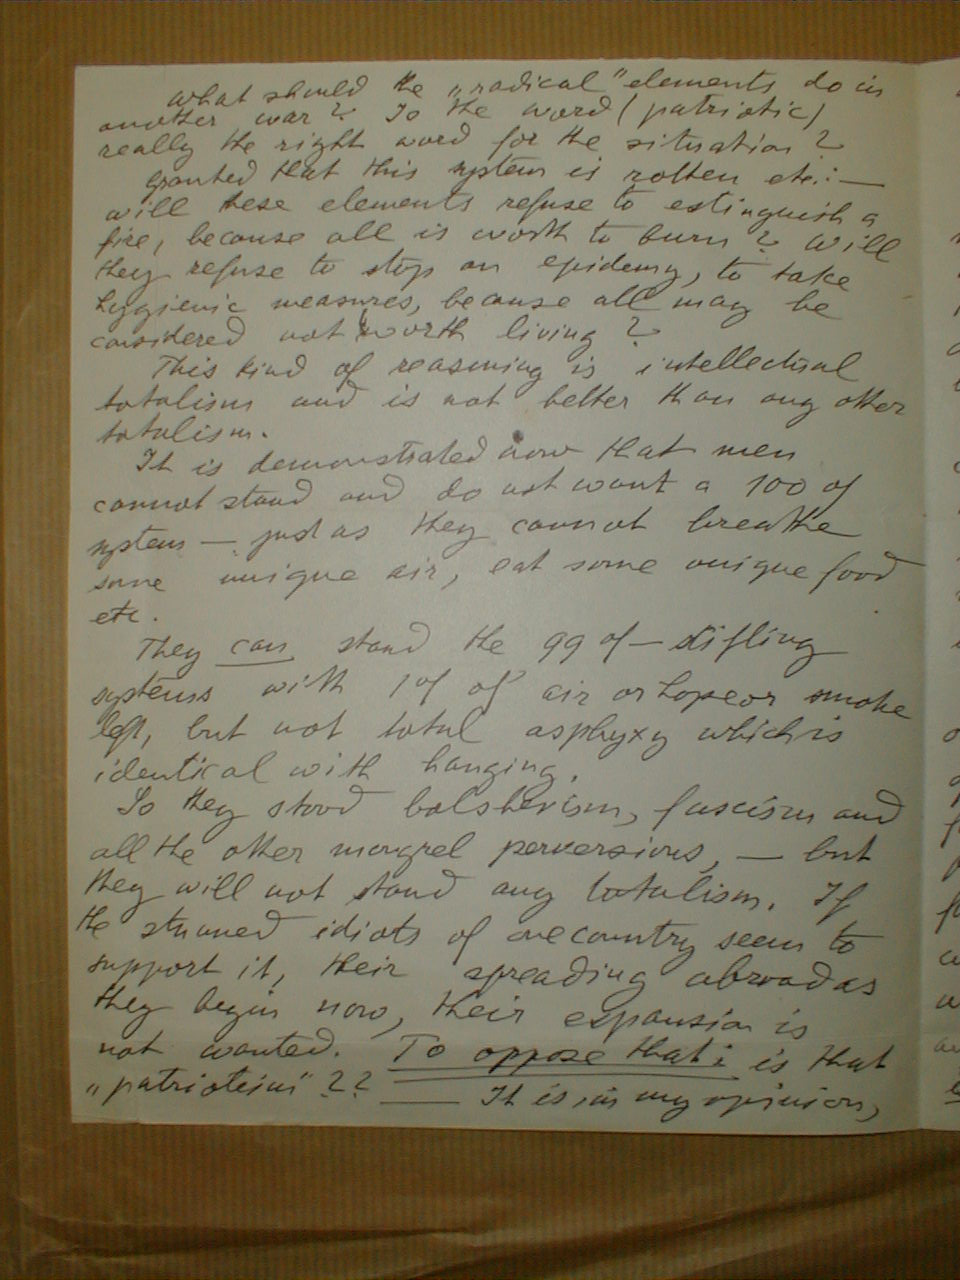 What should the „radical" elements do in
another war? Is the word (patriotic)
really the right word for the situation?
granted that this system is rotten etc.: —
will these elements refuse to extinguish a
fire, because all is worth to burn? Will
they refuse to stop an epidemy, to take
hygienic measures, because all may be
considered not worth living?
This kind of reasoning is intellectual
totalism and is not better than any other
totalism.
It is demonstrated now that men
cannot stand and do not want a 100 %
system — just as they cannot breathe
some unique air, eat some unique food
etc.
They can stand the 99 % — stifling
systems with 1 % of air or hope or smoke
left, but not total asphyxy which is
identical with hanging.
So they stood bolshevism, fascism and
all the other mongrel perversions, — but
they will not stand any totalism. If
the stunned idiots of one country seem to
support it, their spreading abroad as
they begin now, their expansion is
not wanted. To oppose that: is that
„patriotism"?? — It is, in my opinion,